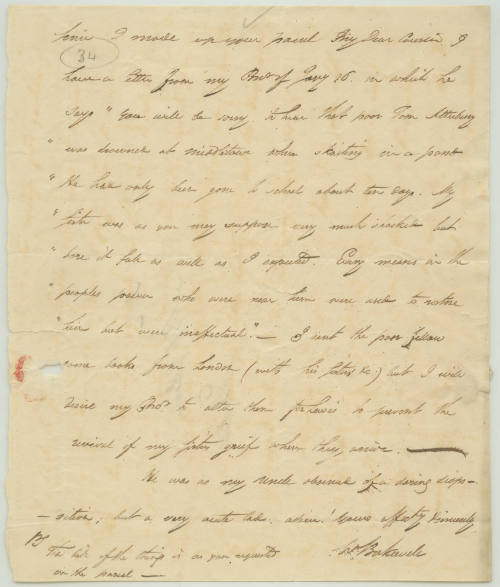 34
Since I made up your parcel My dear Cousin I
have a letter from my Bror of Jany 26. in which he
says " You will be sorry to hear that poor Tom Atterbury
" was drowned at middletown when skaiting in a pond
" He had only been gone to school about ten days. My
" sister was as you may suppose very much shocked but
" bore it full as well as I expected. Every means in the
" peoples power who were near him were used to restore
" him but were ineffectual." — I sent the poor fellow
some books from London ( with his sisters &c ) but I will
desire my Bror to alter them to prevent the
revival of my sisters grief when they arrive. —
He was as my Uncle observed of a daring dispo-
-sition, but a very acute lad. adieu! Yours affecty & sincerely
PS
The bill of the things is as you requested
in the parcel —
Bakewell